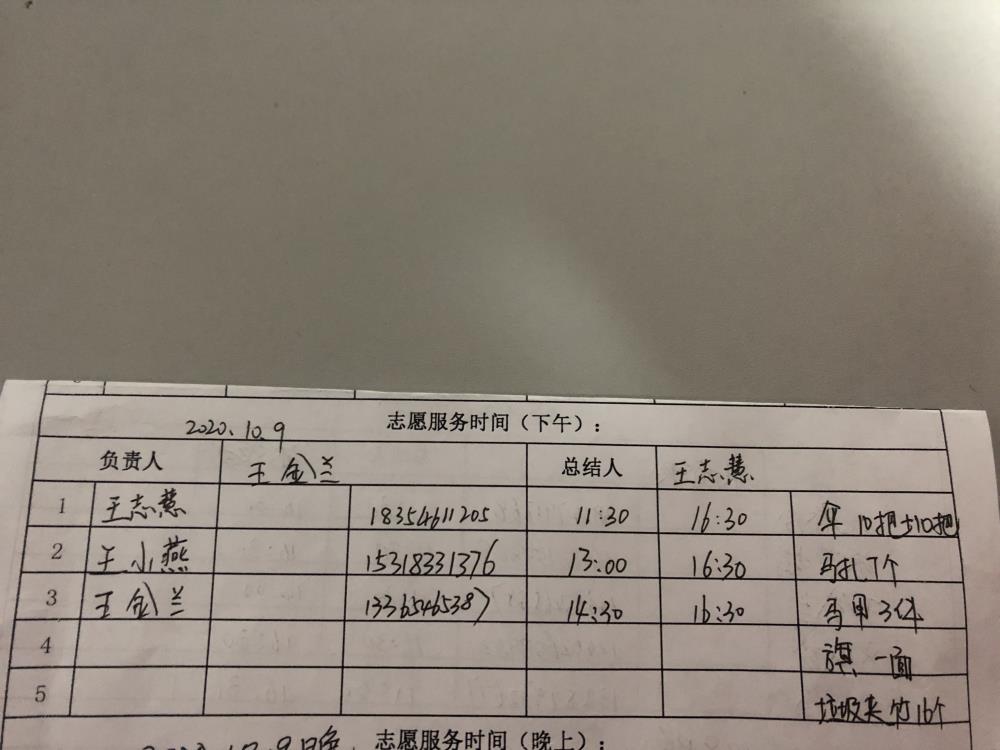 2020.10.9 志愿服务时间（下午）：
负责人 王金兰 总结人 王志慧
1 王志慧 18354611205 11:30 16:30 伞10把+10把
2 王小燕 15318331376 13:00 16:30 马扎7个
3 王金兰 13365465387 14:30 16:30 马甲3件
4 旗一面
5 垃圾夹竹16个
志愿服务时间（晚上）：